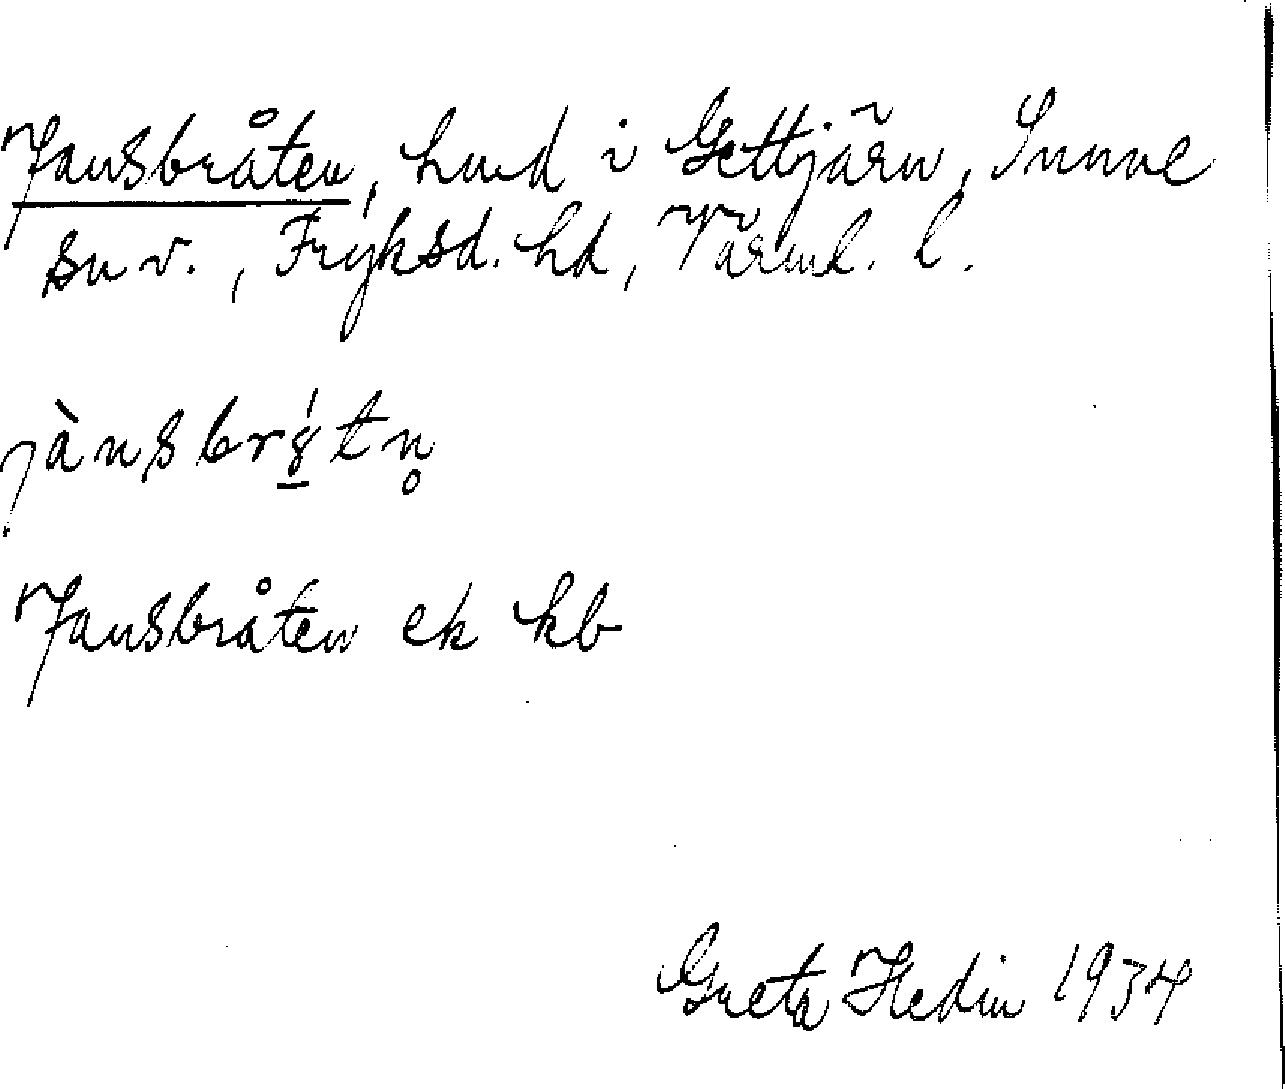 Jansbråten, hmd i Gettjärn, Sunne
sn v., Fryksd. hd, Värml. l.
jànsbr tn̥
Jansbråten ek kb
Greta Hedin 1934